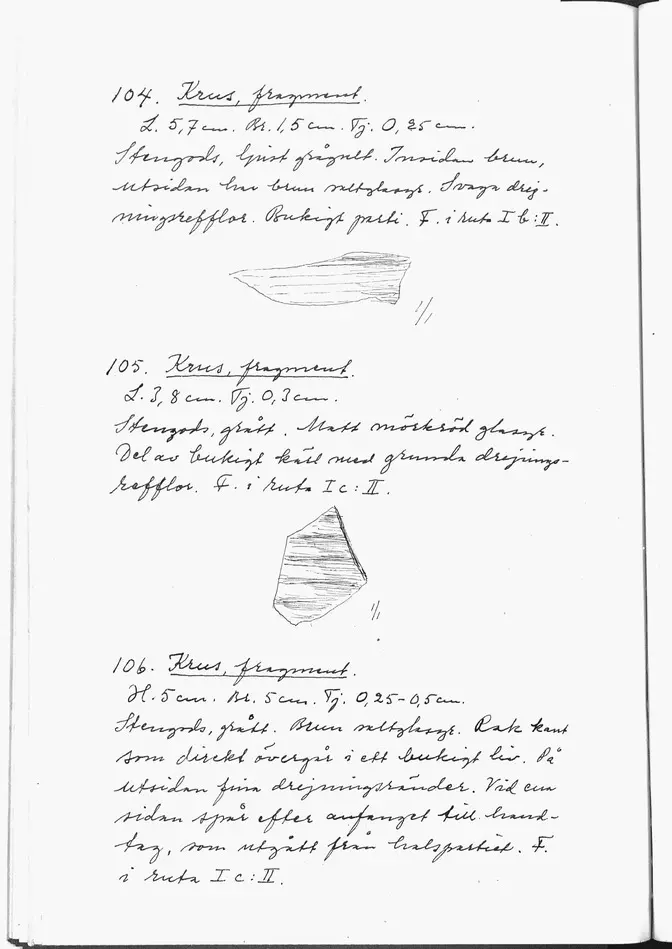 104. Krus, fragment.
L. 5,7 cm. Br. 1,5 cm. Tj. 0,25 cm.
Stengods, ljust grågult. Insidan brun,
utsidan har brun saltglasyr. Svaga drej-
ningsrefflor. Bukigt parti. F. i ruta I b:II.
1/1
105. Krus, fragment.
L. 3,8 cm. Tj. 0,3 cm.
Stengods, grått. Matt mörkröd glasyr.
Del av bukigt kärl med grunda drejnings-
refflor. F. i ruta I c:II.
1/1
106. Krus, fragment.
H. 5 cm. Br. 5 cm. Tj. 0,25-0,5 cm.
Stengods, grått. Brun saltglasyr. Rak kant
som direkt övergår i ett bukigt liv. På
utsidan fina drejningsränder. Vid ena
sidan spår efter anfanget till hand-
tag, som utgått från halspartiet. F.
i ruta I c:II.